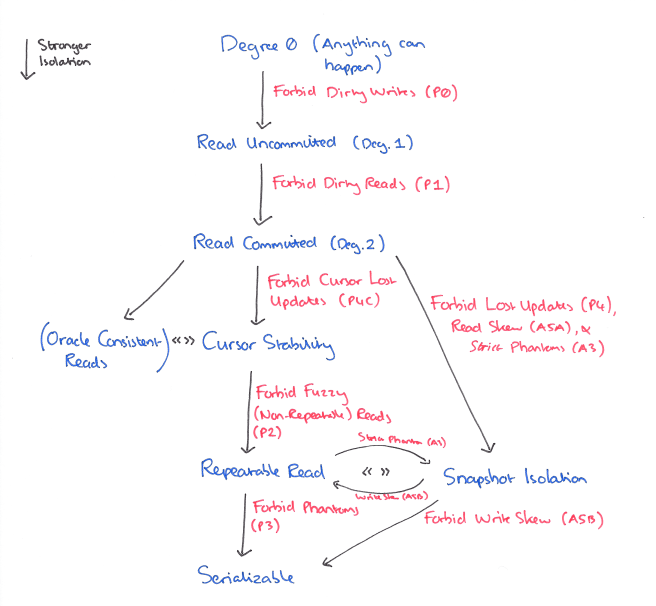 Stronger
Isolation
Degree 0 (Anything can
happen)
Forbid Dirty Writes (P0)
Read Uncommitted (Deg. 1)
Forbid Dirty Reads (P1)
Read Committed (Deg. 2)
Forbid Cursor Lost
Updates (P4C)
Forbid Lost Updates (P4),
Read Skew (A5A), &
Strict Phantoms (A3)
(Oracle Consistent
Reads)
«» Cursor Stability
Forbid Fuzzy
(Non-Repeatable) Reads
(P2)
Strict Phantom (A3)
Repeatable Read
« »
Snapshot Isolation
Write Skew (A5B)
Forbid Phantoms
(P3)
Forbid Write Skew (A5B)
Serializable